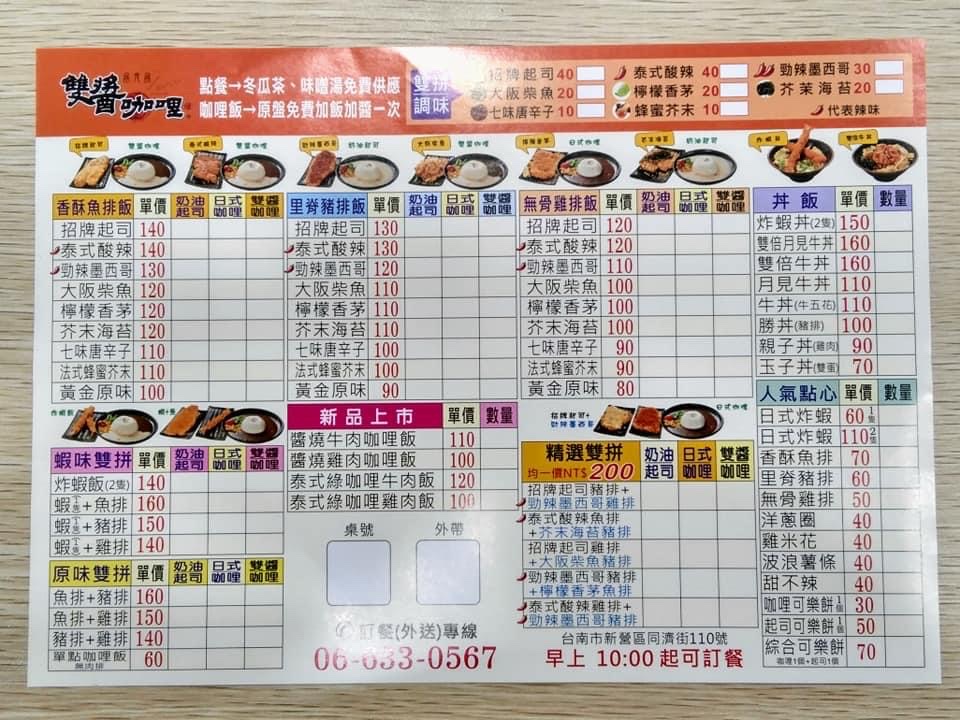 雙醬咖哩
點餐→冬瓜茶、味噌湯免費供應
咖哩飯→原盤免費加飯加醬一次
雙拼調味
招牌起司40 泰式酸辣 40 勁辣墨西哥30
大阪柴魚20 檸檬香茅 20 芥茉海苔20
七味唐辛子10 蜂蜜芥末 10 代表辣味
招牌起司 雙醬咖哩 泰式酸辣 雙醬咖哩 勁辣墨西哥 奶油起司 大阪柴魚 雙醬咖哩 檸檬香茅 日式咖哩 芥末海苔 奶油起司 炸蝦丼 雙倍牛丼
香酥魚排飯 單價 奶油起司 日式咖哩 雙醬咖哩
招牌起司 140
泰式酸辣 140
勁辣墨西哥 130
大阪柴魚 120
檸檬香茅 120
芥末海苔 120
七味唐辛子 110
法式蜂蜜芥末 110
黃金原味 100
里脊豬排飯 單價 奶油起司 日式咖哩 雙醬咖哩
招牌起司 130
泰式酸辣 130
勁辣墨西哥 120
大阪柴魚 110
檸檬香茅 110
芥末海苔 110
七味唐辛子 100
法式蜂蜜芥末 100
黃金原味 90
無骨雞排飯 單價 奶油起司 日式咖哩 雙醬咖哩
招牌起司 120
泰式酸辣 120
勁辣墨西哥 110
大阪柴魚 100
檸檬香茅 100
芥末海苔 100
七味唐辛子 90
法式蜂蜜芥末 90
黃金原味 80
丼飯 單價 數量
炸蝦丼(2隻) 150
雙倍月見牛丼 160
雙倍牛丼 160
月見牛丼 110
牛丼(牛五花) 110
勝丼(豬排) 100
親子丼(雞肉) 90
玉子丼(雙蛋) 70
炸蝦飯 蝦+魚
蝦味雙拼 單價 奶油起司 日式咖哩 雙醬咖哩
炸蝦飯(2隻) 140
蝦(1隻)+魚排 160
蝦(1隻)+豬排 150
蝦(1隻)+雞排 140
原味雙拼 單價 奶油起司 日式咖哩 雙醬咖哩
魚排+豬排 160
魚排+雞排 150
豬排+雞排 140
單點咖哩飯 無肉排 60
新品上市 單價 數量
醬燒牛肉咖哩飯 110
醬燒雞肉咖哩飯 100
泰式綠咖哩牛肉飯 120
泰式綠咖哩雞肉飯 100
桌號 外帶
訂餐(外送)專線
06-633-0567
招牌起司+
勁辣墨西哥
日式咖哩
精選雙拼 均一價NT$200 奶油起司 日式咖哩 雙醬咖哩
招牌起司豬排+
勁辣墨西哥雞排
泰式酸辣魚排
+芥末海苔豬排
招牌起司雞排
+大阪柴魚豬排
勁辣墨西哥豬排
+檸檬香茅魚排
泰式酸辣雞排+
勁辣墨西哥豬排
台南市新營區同濟街110號
早上 10:00 起可訂餐
人氣點心 單價 數量
日式炸蝦 60 1隻
日式炸蝦 110 2隻
香酥魚排 70
里脊豬排 60
無骨雞排 50
洋蔥圈 40
雞米花 40
波浪薯條 40
甜不辣 40
咖哩可樂餅1個 30
起司可樂餅1個 50
綜合可樂餅 70
咖哩1個+起司1個